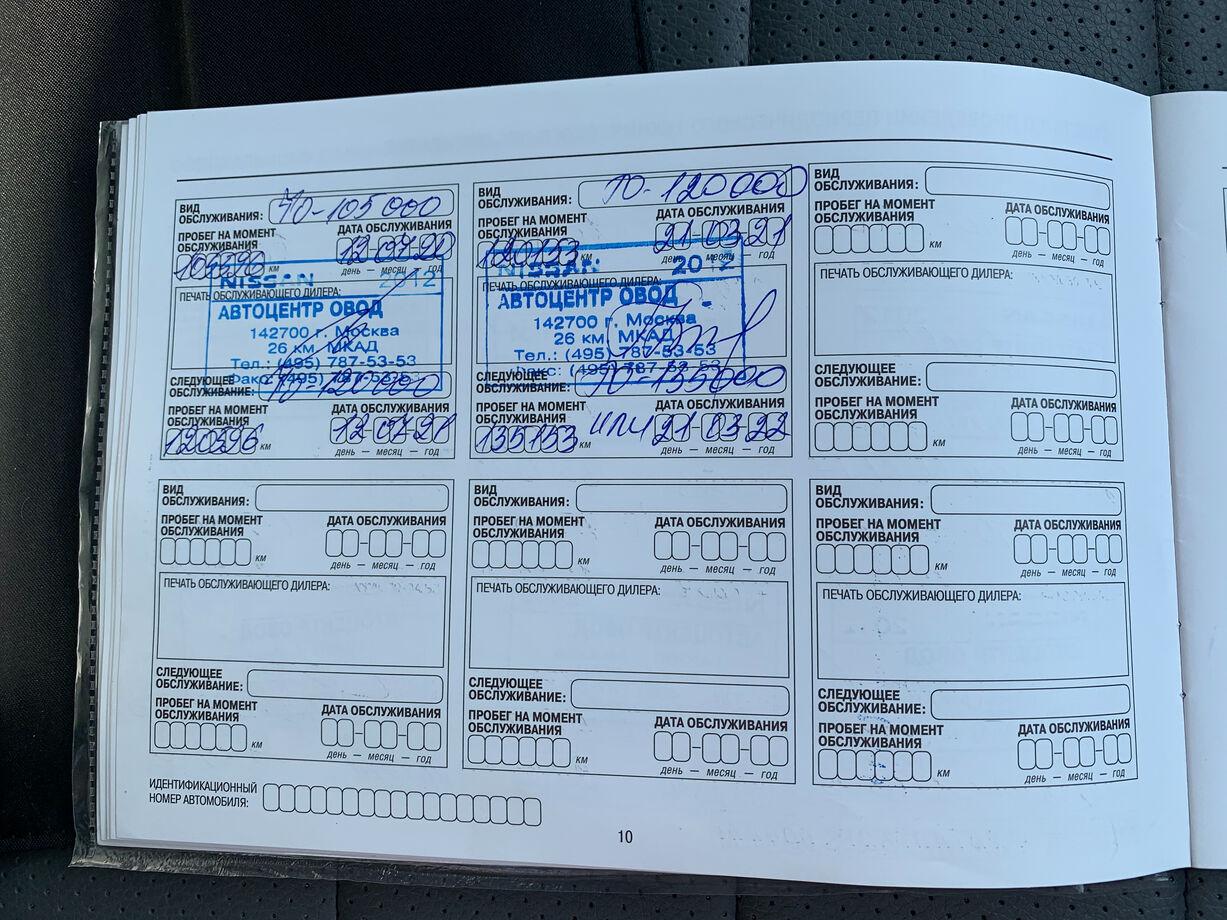 ВИД
ОБСЛУЖИВАНИЯ: ТО-105 000
ПРОБЕГ НА МОМЕНТ
ОБСЛУЖИВАНИЯ
ДАТА ОБСЛУЖИВАНИЯ
км
12-07-20
день — месяц — год
ПЕЧАТЬ ОБСЛУЖИВАЮЩЕГО ДИЛЕРА:
NISSAN 2012
АВТОЦЕНТР ОВОД
142700 г. Москва
26 км. МКАД
Тел.: (495) 787-53-53
Факс: (495) 787-53-53
СЛЕДУЮЩЕЕ
ОБСЛУЖИВАНИЕ: ТО-120000
ПРОБЕГ НА МОМЕНТ
ОБСЛУЖИВАНИЯ
ДАТА ОБСЛУЖИВАНИЯ
120596 км
12-07-21
день — месяц — год
ВИД
ОБСЛУЖИВАНИЯ: ТО-120000
ПРОБЕГ НА МОМЕНТ
ОБСЛУЖИВАНИЯ
ДАТА ОБСЛУЖИВАНИЯ
120153 км
21-03-21
день — месяц — год
ПЕЧАТЬ ОБСЛУЖИВАЮЩЕГО ДИЛЕРА:
NISSAN 2012
АВТОЦЕНТР ОВОД
142700 г. Москва
26 км. МКАД
Тел.: (495) 787-53-53
Факс: (495) 787-53-53
СЛЕДУЮЩЕЕ
ОБСЛУЖИВАНИЕ: ТО-135000
ПРОБЕГ НА МОМЕНТ
ОБСЛУЖИВАНИЯ
ДАТА ОБСЛУЖИВАНИЯ
135153 км или 21-03-22
день — месяц — год
ВИД
ОБСЛУЖИВАНИЯ:
ПРОБЕГ НА МОМЕНТ
ОБСЛУЖИВАНИЯ
ДАТА ОБСЛУЖИВАНИЯ
км
день — месяц — год
ПЕЧАТЬ ОБСЛУЖИВАЮЩЕГО ДИЛЕРА:
СЛЕДУЮЩЕЕ
ОБСЛУЖИВАНИЕ:
ПРОБЕГ НА МОМЕНТ
ОБСЛУЖИВАНИЯ
ДАТА ОБСЛУЖИВАНИЯ
км
день — месяц — год
ВИД
ОБСЛУЖИВАНИЯ:
ПРОБЕГ НА МОМЕНТ
ОБСЛУЖИВАНИЯ
ДАТА ОБСЛУЖИВАНИЯ
км
день — месяц — год
ПЕЧАТЬ ОБСЛУЖИВАЮЩЕГО ДИЛЕРА:
СЛЕДУЮЩЕЕ
ОБСЛУЖИВАНИЕ:
ПРОБЕГ НА МОМЕНТ
ОБСЛУЖИВАНИЯ
ДАТА ОБСЛУЖИВАНИЯ
км
день — месяц — год
ВИД
ОБСЛУЖИВАНИЯ:
ПРОБЕГ НА МОМЕНТ
ОБСЛУЖИВАНИЯ
ДАТА ОБСЛУЖИВАНИЯ
км
день — месяц — год
ПЕЧАТЬ ОБСЛУЖИВАЮЩЕГО ДИЛЕРА:
СЛЕДУЮЩЕЕ
ОБСЛУЖИВАНИЕ:
ПРОБЕГ НА МОМЕНТ
ОБСЛУЖИВАНИЯ
ДАТА ОБСЛУЖИВАНИЯ
км
день — месяц — год
ВИД
ОБСЛУЖИВАНИЯ:
ПРОБЕГ НА МОМЕНТ
ОБСЛУЖИВАНИЯ
ДАТА ОБСЛУЖИВАНИЯ
км
день — месяц — год
ПЕЧАТЬ ОБСЛУЖИВАЮЩЕГО ДИЛЕРА:
СЛЕДУЮЩЕЕ
ОБСЛУЖИВАНИЕ:
ПРОБЕГ НА МОМЕНТ
ОБСЛУЖИВАНИЯ
ДАТА ОБСЛУЖИВАНИЯ
км
день — месяц — год
ИДЕНТИФИКАЦИОННЫЙ
НОМЕР АВТОМОБИЛЯ:
10